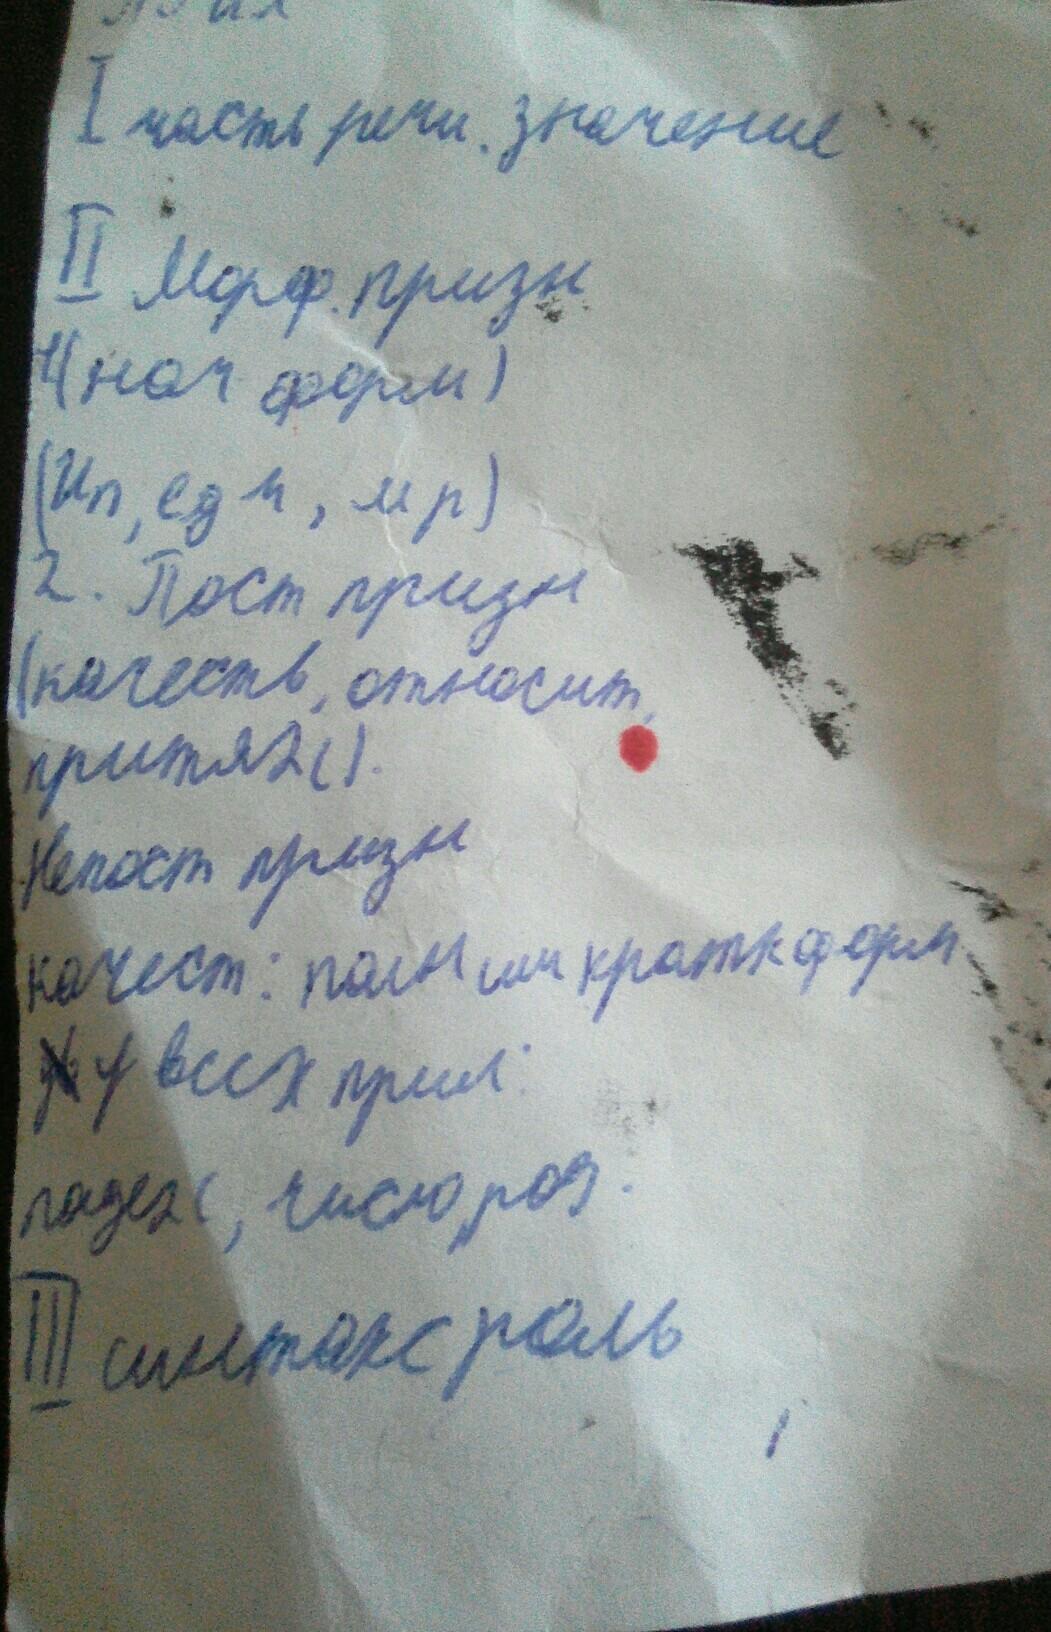 I часть речи. значение
II Морф. призн
1(нач форм)
(Ип, ед ч, м р)
2. Пост призн
(качеств, относит,
притяж).
Непост призн
качест: полн или кратк форм
у всех прил:
падеж, число род.
III синтакс роль